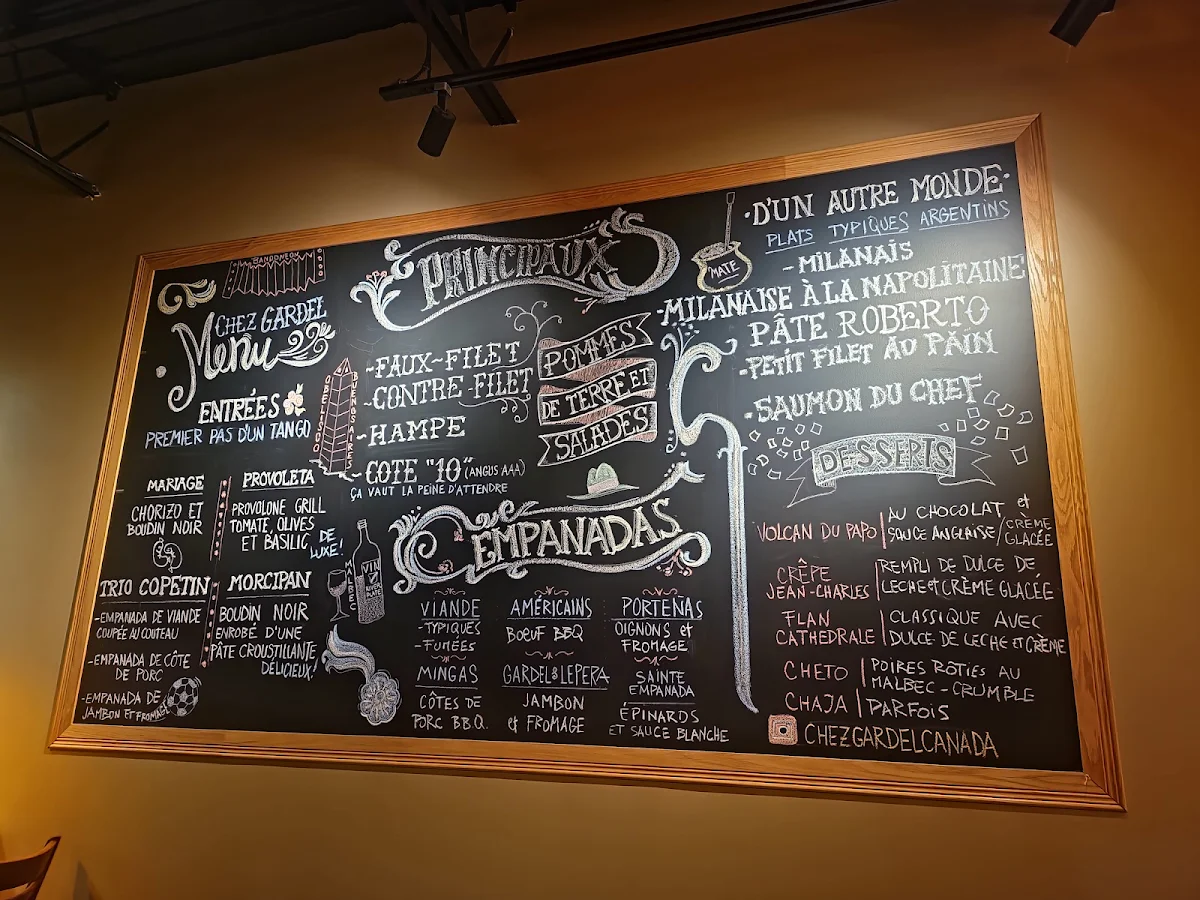 BANDONEON
CHEZ GARDEL
Menu
ENTRÉES
PREMIER PAS D'UN TANGO
OBELISCO
BUENOS AIRES
MARIAGE
CHORIZO ET
BOUDIN NOIR
PROVOLETA
PROVOLONE GRILL
TOMATE, OLIVES
ET BASILIC
DE
LUXE!
TRIO COPETIN
-EMPANADA DE VIANDE
COUPÉE AU COUTEAU
-EMPANADA DE CÔTE
DE PORC
-EMPANADA DE
JAMBON ET FROMAGE
MORCIPAN
BOUDIN NOIR
ENROBÉ D'UNE
PÂTE CROUSTILLANTE
DÉLICIEUX!
PRINCIPAUX
-FAUX-FILET
-CONTRE-FILET
-HAMPE
-COTE "10" (ANGUS AAA)
ÇA VAUT LA PEINE D'ATTENDRE
POMMES
DE TERRE ET
SALADES
MALBEC
VIN
EMPANADAS
VIANDE
TYPIQUES
-FUMÉES
AMÉRICAINS
BOEUF BBQ
PORTEÑAS
OIGNONS et
FROMAGE
MINGAS
CÔTES DE
PORC B.B.Q.
GARDEL&LEPERA
JAMBON
et FROMAGE
SAINTE
EMPANADA
ÉPINARDS
ET SAUCE BLANCHE
MATE
·D'UN AUTRE MONDE·
PLATS TYPIQUES ARGENTINS
-MILANAIS
-MILANAISE À LA NAPOLITAINE
PÂTE ROBERTO
-PETIT FILET AU PAIN
-SAUMON DU CHEF
DESSERTS
VOLCAN DU PAPO | AU CHOCOLAT et
SAUCE ANGLAISE/CRÈME
GLACÉE
CRÊPE
JEAN-CHARLES | REMPLI DE DULCE DE
LECHE et CRÈME GLACÉE
FLAN
CATHEDRALE | CLASSIQUE AVEC
DULCE DE LECHE ET CRÈME
CHETO | POIRES RÔTIES AU
MALBEC - CRUMBLE
CHAJA | PARFOIS
CHEZGARDELCANADA